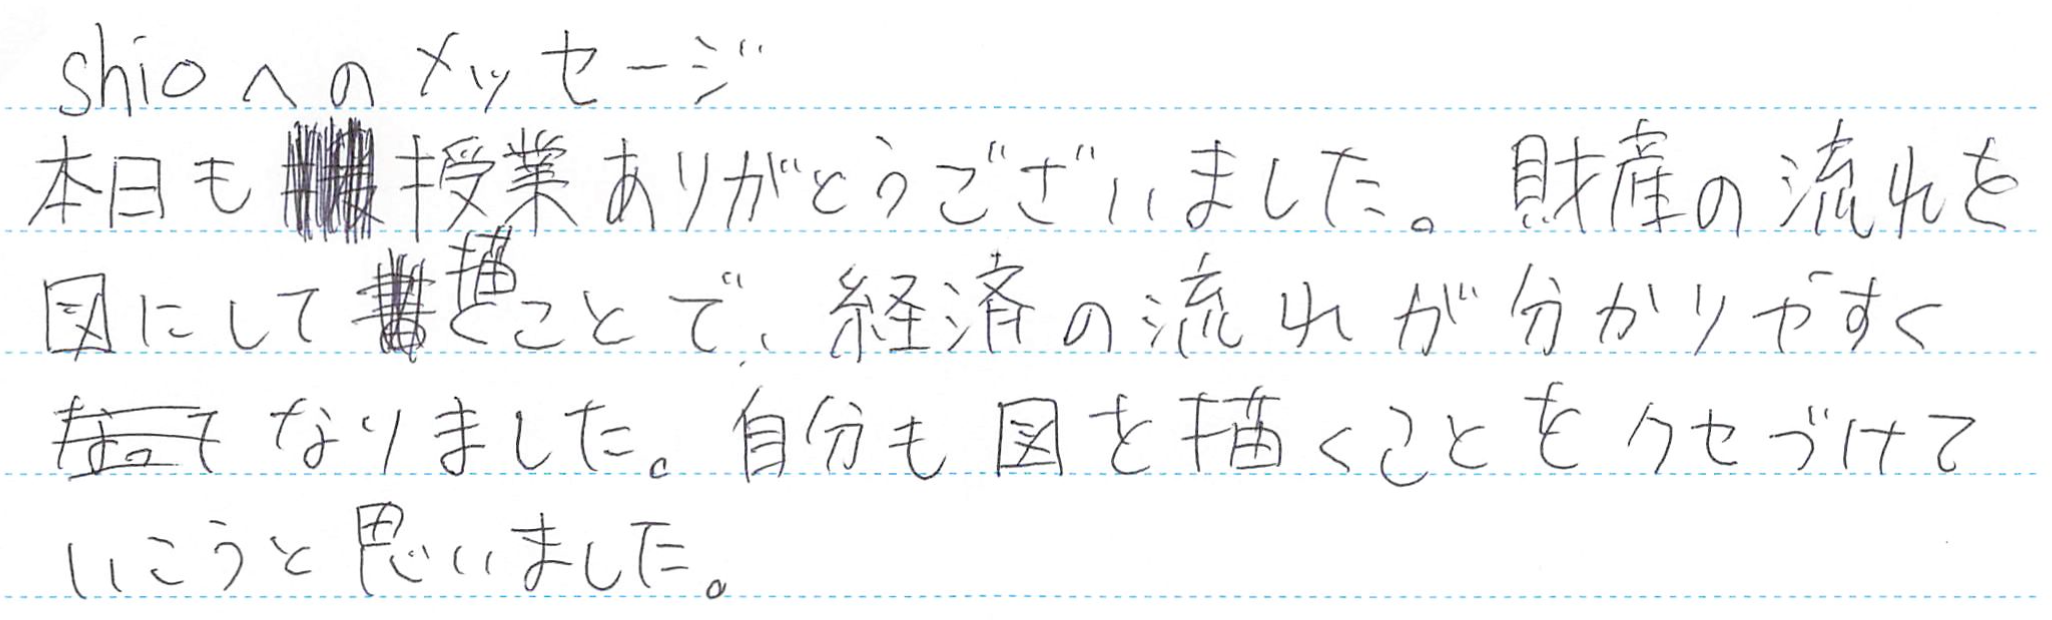 shioへのメッセージ
本日も授業ありがとうございました。財産の流れを
図にして描くことで、経済の流れが分かりやすく
なりました。自分も図を描くことをクセづけて
いこうと思いました。